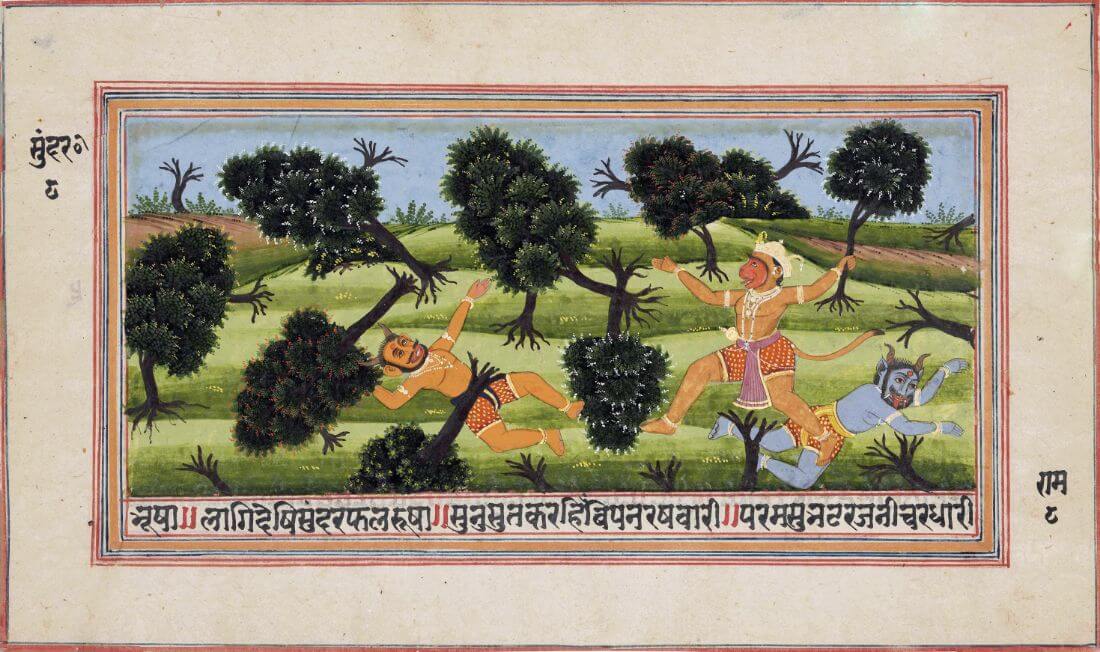 सुंदर०
८
राम
८
भूषा॥लागिदेषिसुंदरफलरूषा॥सुनुसुतकरहिंविपनरषवारी॥परमसुभटरजनीचरधारी